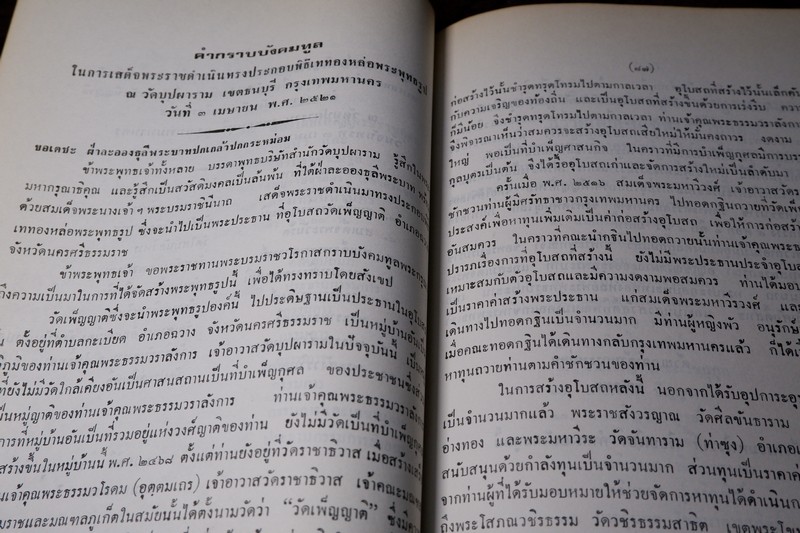 คำกราบบังคมทูล
ในการเสด็จพระราชดำเนินทรงประกอบพิธีเททองหล่อพระพุทธรูป
ณ วัดบุปผาราม เขตธนบุรี กรุงเทพมหานคร
วันที่ ๓ เมษายน พ.ศ. ๒๕๒๑
ขอเดชะ ฝ่าละอองธุลีพระบาทปกเกล้าปกกระหม่อม
ข้าพระพุทธเจ้าทั้งหลาย บรรดาพุทธบริษัทสำนักวัดบุปผาราม รู้สึก
มหากรุณาธิคุณ และรู้สึกเป็นสวัสดิมงคลเป็นล้นพ้น ที่ใต้ฝ่าละอองธุลีพระบาท
ด้วยสมเด็จพระนางเจ้า ฯ พระบรมราชินีนาถ เสด็จพระราชดำเนินมาทรงประกอบ
เททองหล่อพระพุทธรูป ซึ่งจะนำไปเป็นพระประธาน ที่อุโบสถวัดเพ็ญญาติ อำเภอฉวาง
จังหวัดนครศรีธรรมราช
ข้าพระพุทธเจ้า ขอพระราชทานพระบรมราชวโรกาสกราบบังคมทูลพระกรุณา
ถึงความเป็นมาในการที่ได้จัดสร้างพระพุทธรูปนี้ เพื่อได้ทรงทราบโดยสังเขป
วัดเพ็ญญาติซึ่งจะนำพระพุทธรูปองค์นี้ ไปประดิษฐานเป็นประธานในอุโบสถ
ตั้งอยู่ที่ตำบลกะเบียด อำเภอฉวาง จังหวัดนครศรีธรรมราช เป็นหมู่บ้าน
ภูมิของท่านเจ้าคุณพระธรรมวราลังการ เจ้าอาวาสวัดบุปผารามในปัจจุบันนี้ เป็น
ที่ยังไม่มีวัดใกล้เคียงอันเป็นศาสนสถานเป็นที่บำเพ็ญกุศล ของประชาชนซึ่ง
เป็นหมู่ญาติของท่านเจ้าคุณพระธรรมวราลังการ ท่านเจ้าคุณพระธรรมวราลังการ
การที่หมู่บ้านอันเป็นที่รวมอยู่แห่งวงศ์ญาติของท่าน ยังไม่มีวัดเป็นที่บำเพ็ญกุศล
สร้างขึ้นในหมู่บ้านนี้ พ.ศ. ๒๔๖๘ ตั้งแต่ท่านยังอยู่ที่วัดราชาธิวาส เมื่อสร้าง
เจ้าคุณพระธรรมวโรดม (อุตฺตมเถร) เจ้าอาวาสวัดราชาธิวาส เจ้าคณะมณฑล
และมณฑลภูเก็ตในสมัยนั้นได้ตั้งนามวัดว่า “วัดเพ็ญญาติ” ซึ่งมี
(๘๗)
ก่อสร้างไว้นั้นชำรุดทรุดโทรมไปตามกาลเวลา อุโบสถที่สร้างไว้นั้นเล็ก
กับความเจริญของท้องถิ่น และเป็นอุโบสถที่สร้างขึ้นด้วยการเร่งรีบ
ก็มีน้อย จึงชำรุดทรุดโทรมไปตามกาลเวลา ท่านเจ้าคุณพระธรรมวราลังการ
จึงพิจารณาเห็นว่าสมควรจะสร้างอุโบสถเสียใหม่ให้มั่นคงถาวร งดงาม
ใหญ่ พอเป็นที่บำเพ็ญศาสนกิจ ในคราวที่มีการบำเพ็ญกุศลมีการบรรพชา
กุลบุตรเป็นต้น จึงได้รื้ออุโบสถเก่าและจัดการสร้างใหม่เป็นลำดับมา
ครั้นเมื่อ พ.ศ. ๒๕๑๖ สมเด็จพระมหาวีรวงศ์ เจ้าอาวาส
ชักชวนท่านผู้มีศรัทธาชาวกรุงเทพมหานคร ไปทอดกฐินถวายที่วัดเพ็ญญาติ
ประสงค์เพื่อหาทุนเพิ่มเติมเป็นค่าก่อสร้างอุโบสถ เพื่อให้การก่อสร้าง
อันสมควร ในคราวที่คณะนำกฐินไปทอดถวายนั้นท่านเจ้าคุณพระธรรม
ปรารภเรื่องการที่อุโบสถที่สร้างนี้ ยังไม่มีพระประธานประจำอุโบสถ
เหมาะสมกับตัวอุโบสถและมีความงดงามพอสมควร ท่านได้มอบ
เป็นราคาค่าสร้างพระประธาน แก่สมเด็จพระมหาวีรวงศ์ และ
เดินทางไปทอดกฐินเป็นจำนวนมาก มีท่านผู้หญิงพัว อนุรักษ์
เมื่อคณะทอดกฐินได้เดินทางกลับกรุงเทพมหานครแล้ว ก็ได้
หาทุนถวายท่านตามคำชักชวนของท่าน
ในการสร้างอุโบสถหลังนี้ นอกจากได้รับอุปการะ
เป็นจำนวนมากแล้ว พระราชสังวรญาณ วัดศีลขันธาราม
อ่างทอง และพระมหาวีระ วัดจันทาราม (ท่าซุง) อำเภอ
สนับสนุนด้วยกำลังทุนเป็นจำนวนมาก ส่วนทุนเป็นราคาค่า
จากท่านผู้ที่ได้รับมอบหมายให้ช่วยจัดการหาทุนได้ดำเนิน
ถึงพระโสภณวชิรธรรม วัดวชิรธรรมสาธิต เขตพระโขนง